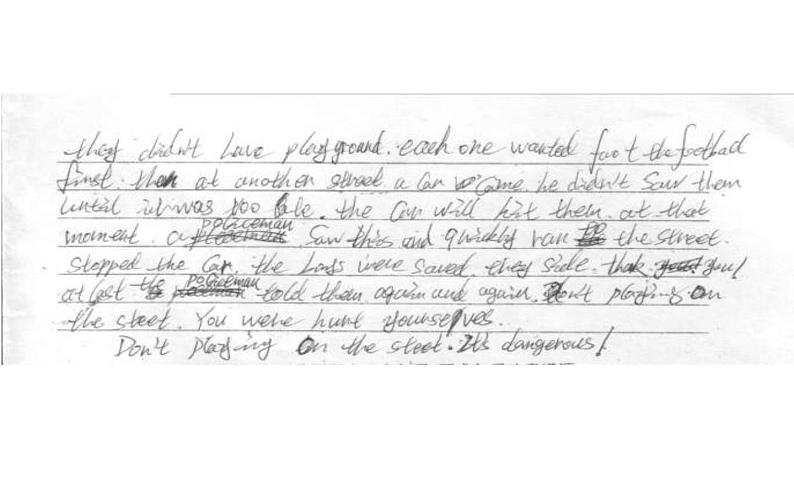 they didn't have playground. each one wanted foot the football
first. then at another street a car came. he didn't saw them
until it was too lale. the car will hit them. at that
moment. a policeman saw this and quickly ran the street.
stopped the car. the boys were saved. they side. thak you!
at last the policeman told them again and again. Don't playing on
the steet. You were hunt yourselves.
Don't playing On the steet. It's dangerous!